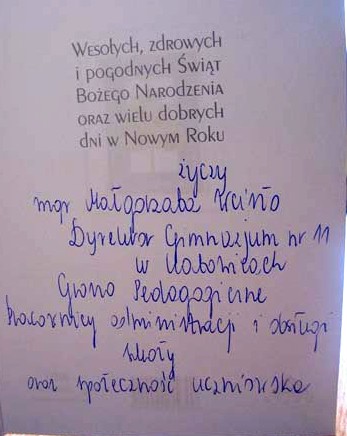 Wesołych, zdrowych
i pogodnych Świąt
Bożego Narodzenia
oraz wielu dobrych
dni w Nowym Roku
życzy
mgr Małgorzata
Dyrektor Gimnazjum nr 11
w Katowicach
Grono Pedagogiczne
Pracownicy administracji i obsługi
szkoły
oraz społeczność uczniowska